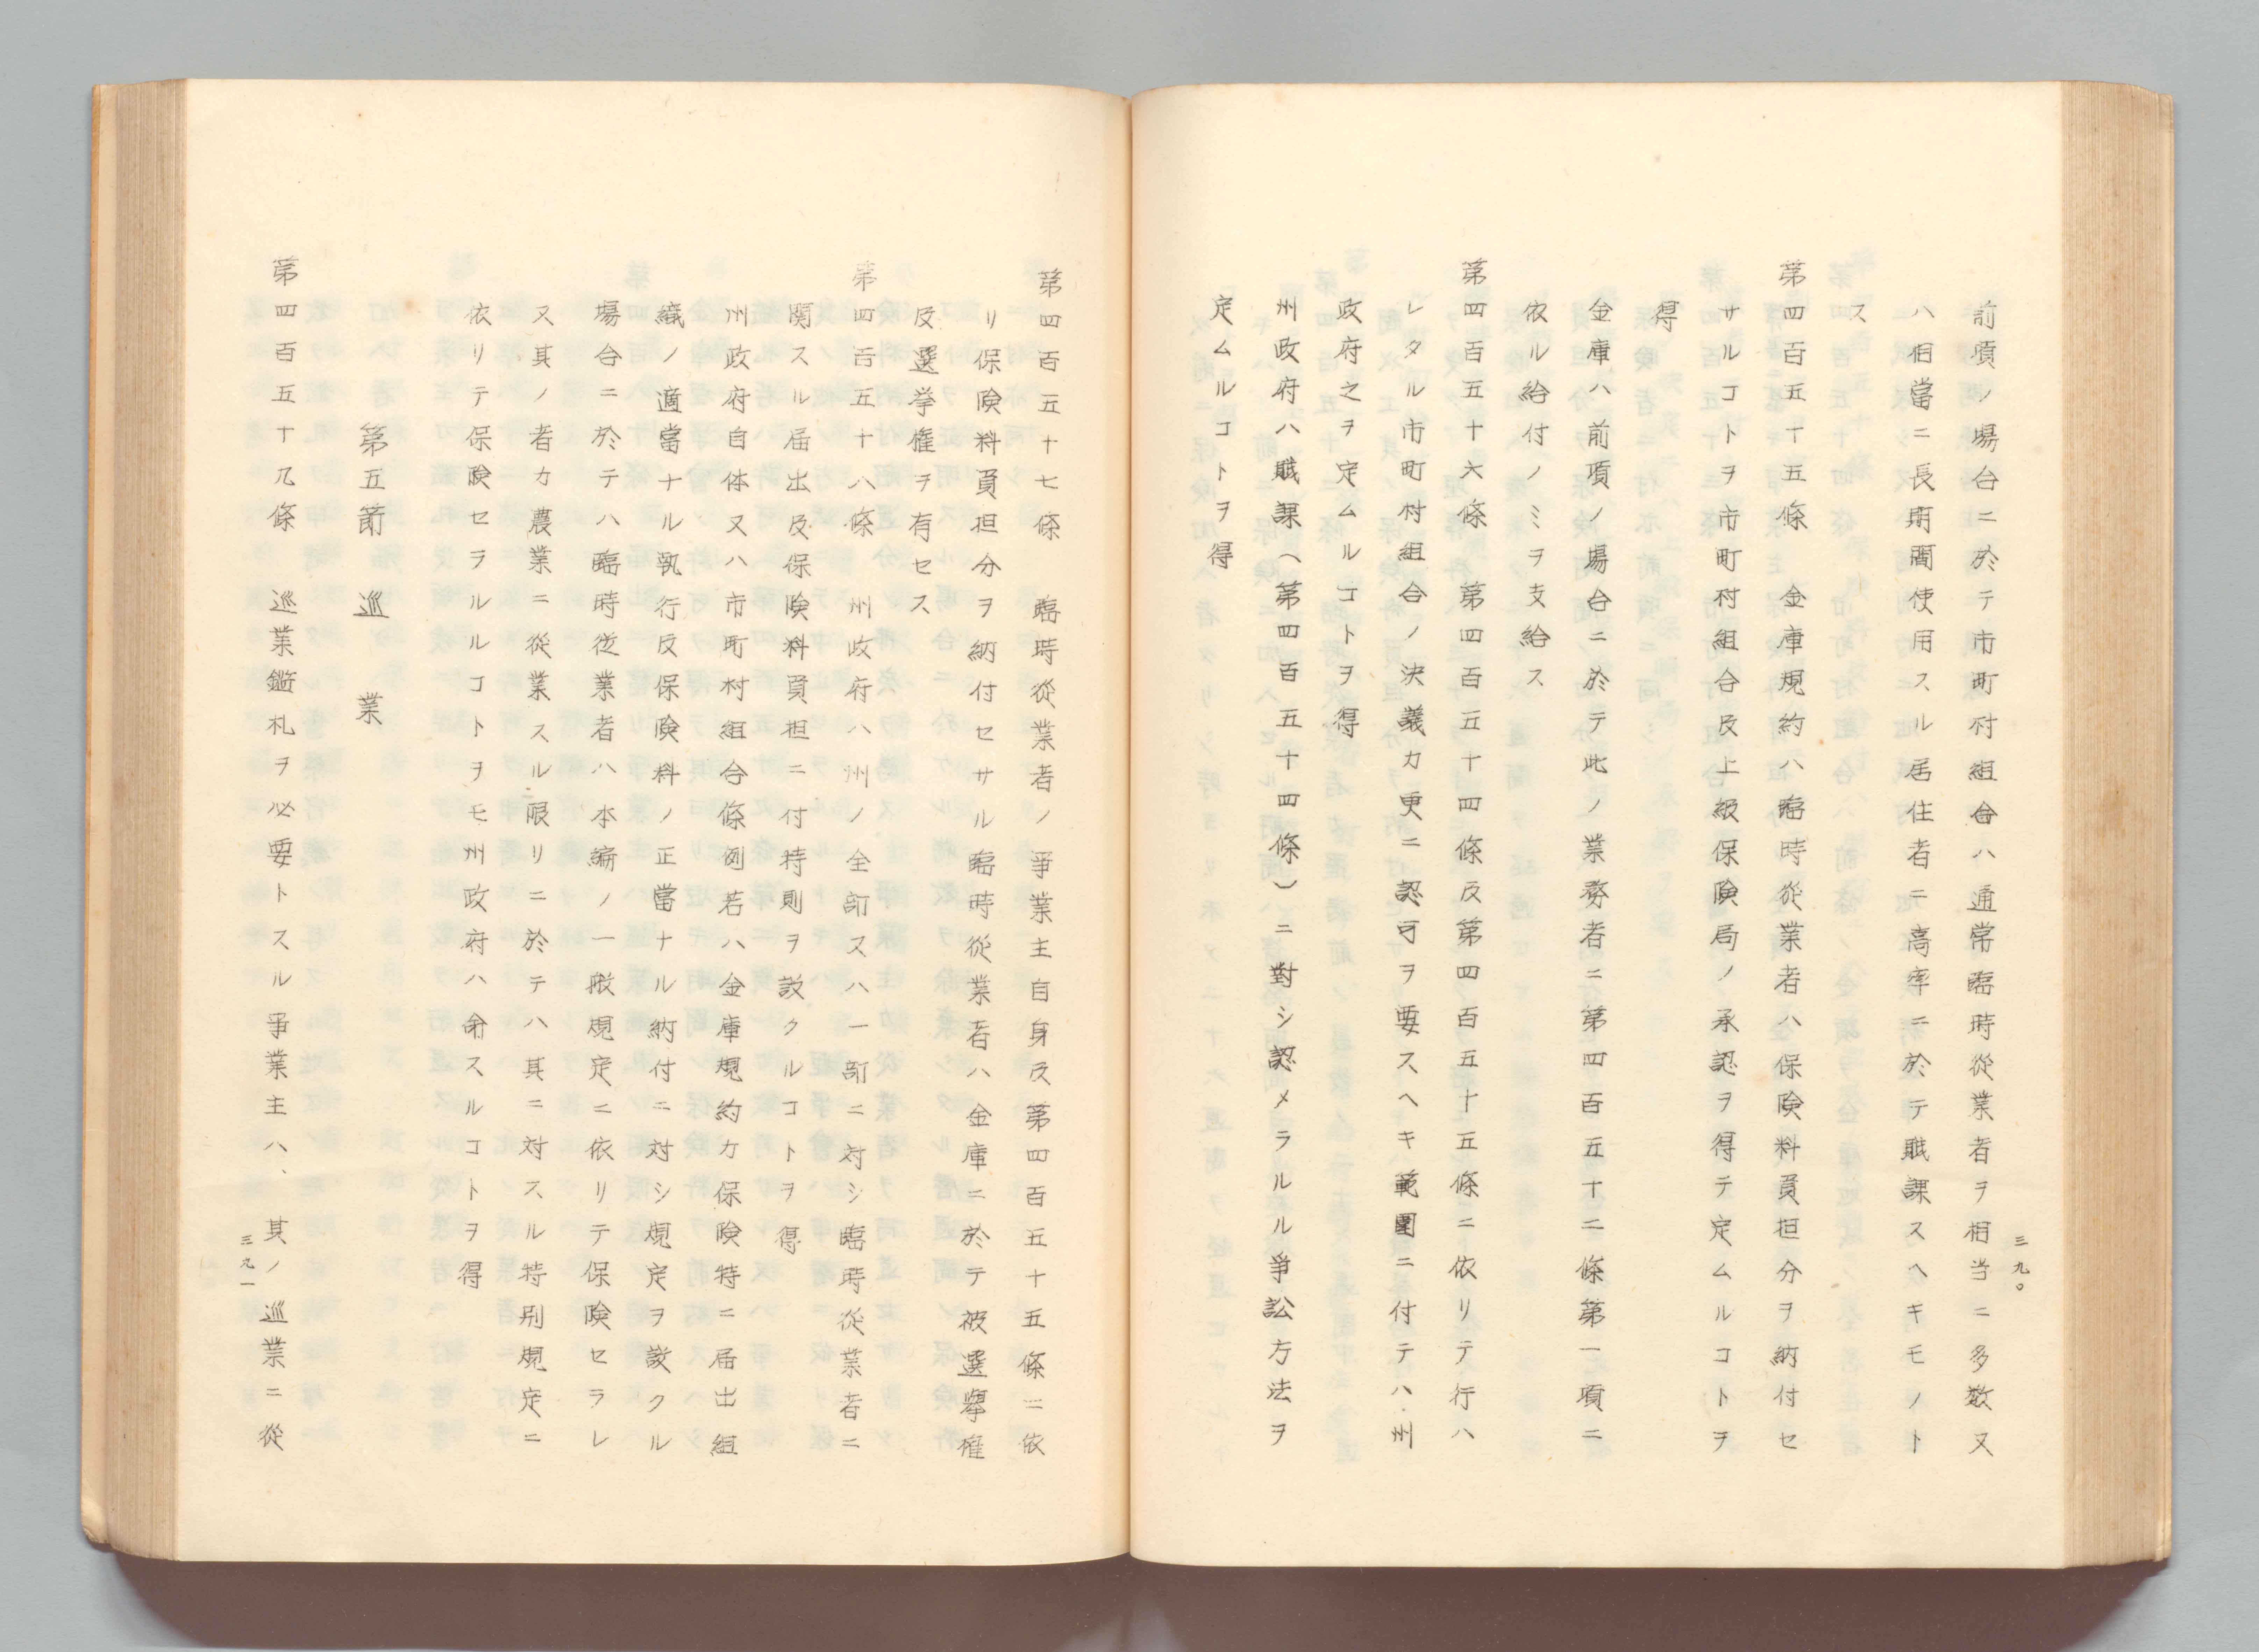 前項ノ場合ニ於テ市町村組合ハ通常臨時従業者ヲ相当ニ多数又
ハ相當ニ長期間使用スル居住者ニ高率ニ於テ賦課スヘキモノト
ス
第四百五十五條　金庫規約ハ臨時従業者ハ保険料負担分ヲ納付セ
サルコトヲ市町村組合及上級保険局ノ承認ヲ得テ定ムルコトヲ
得
金庫ハ前項ノ場合ニ於テ此ノ業務者ニ第四百五十二條第一項ニ
依ル給付ノミヲ支給ス
第四百五十六條　第四百五十四條及第四百五十五條ニ依リテ行ハ
レタル市町村組合ノ決議カ更ニ認可ヲ要スヘキ範囲ニ付テハ州
政府之ヲ定ムルコトヲ得
州政府ハ賦課（第四百五十四條）ニ對シ認メラルル爭訟方法ヲ
定ムルコトヲ得
三九〇
第四百五十七條　臨時従業者ノ事業主自身及第四百五十五條ニ依
リ保険料負担分ヲ納付セサル臨時従業者ハ金庫ニ於テ被選擧権
及選挙権ヲ有セス
第四百五十八條　州政府ハ州ノ全部又ハ一部ニ対シ臨時従業者ニ
関スル届出及保険料負担ニ付特則ヲ設クルコトヲ得
州政府自体又ハ市町村組合條例若ハ金庫規約カ保険特ニ届出組
織ノ適當ナル執行及保険料ノ正當ナル納付ニ対シ規定ヲ設クル
場合ニ於テハ臨時従業者ハ本編ノ一般規定ニ依リテ保険セラレ
又其ノ者カ農業ニ従業スル限リニ於テハ其ニ対スル特別規定ニ
依リテ保険セラルルコトヲモ州政府ハ命スルコトヲ得
第五節　巡　業
第四百五十九條　巡業鑑札ヲ必要トスル事業主ハ、其ノ巡業ニ従
三九一